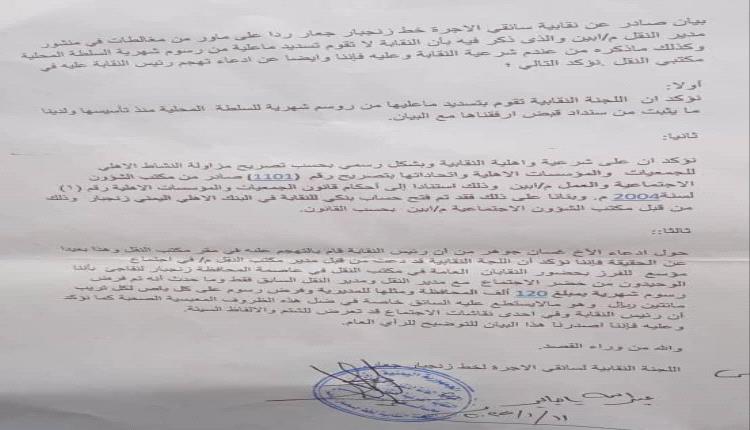 بيان صادر عن نقابية سائقي الاجرة خط زنجبار جعار ردا على ماور من مغالطات في منشور
مدير النقل م/ابين والذي ذكر فيه بأن النقابة لا تقوم تسديد ماعلية من رسوم شهرية السلطة المحلية
وكذلك ماذكره من عندم شرعية النقابة وعليه فإننا وايضا عن ادعاء تهجم رئيس النقابة عليه في
مكتبي النقل .نؤكد التالي ؛
أولا:
نؤكد ان اللجنة النقابية تقوم بتسديد ماعليها من روسم شهرية للسلطة المحلية منذ تأسيسها ولدينا
ما يثبت من سندات قبض ارفقناها مع البيان.
ثانيا:
نؤكد ان على شرعية واهلية النقابية وبشكل رسمي بحسب تصريح مزاولة النشاط الاهلي
للجمعيات والمؤسسات الاهلية واتحاداتها بتصريح رقم (1101) صادر من مكتب الشؤون
الاجتماعية والعمل م/ابين وذلك استنادا إلى أحكام قانون الجمعيات والمؤسسات الاهلية رقم (١)
لسنة2004 م. وبنانا على ذلك فقد تم فتح حساب بنكي للنقابة في البنك الاهلي اليمني زنجبار وذلك
من قبل مكتب الشؤون الاجتماعية م/ابين بحسب القانون.
ثالثا::
حول ادعاء الأخ غسان جوهر من ان رئيس النقابة قام بالتهجم عليه في مقر مكتب النقل وهذا بعيدا
عن الحقيقة فإننا نؤكد أن اللجنة النقابية قد دعت من قبل مدير مكتب النقل م/ في اجتماع
موسع للفرز بحضور النقابان العامة في مكتب النقل في عاصمة المحافظة زنجبار لنفاجئ بأننا
الوحيدون من حضر الاجتماع مع مدير النقل ومدير النقل السابق فقط وما حدث أنه تم فرض
رسوم شهرية بمبلغ 120 ألف المحافظة ومثلها للمديرية وفرض رسوم على كل باص لكل تربب
مائتين ريال وهو مالايستطع عليه السائق خاصة في ضل هذه الظروف المعيسية الصعبة كما نؤكد
أن رئيس النقابة وفي احدى نقاشات الاجتماع قد تعرض للشتم والالفاظ السيئة.
وعليه فإننا اصدرنا هذا البيان للتوضيح للرأي العام.
والله من وراء القصد.
اللجنة النقابية لسائقي الاجرة لخط زنجبار جعار